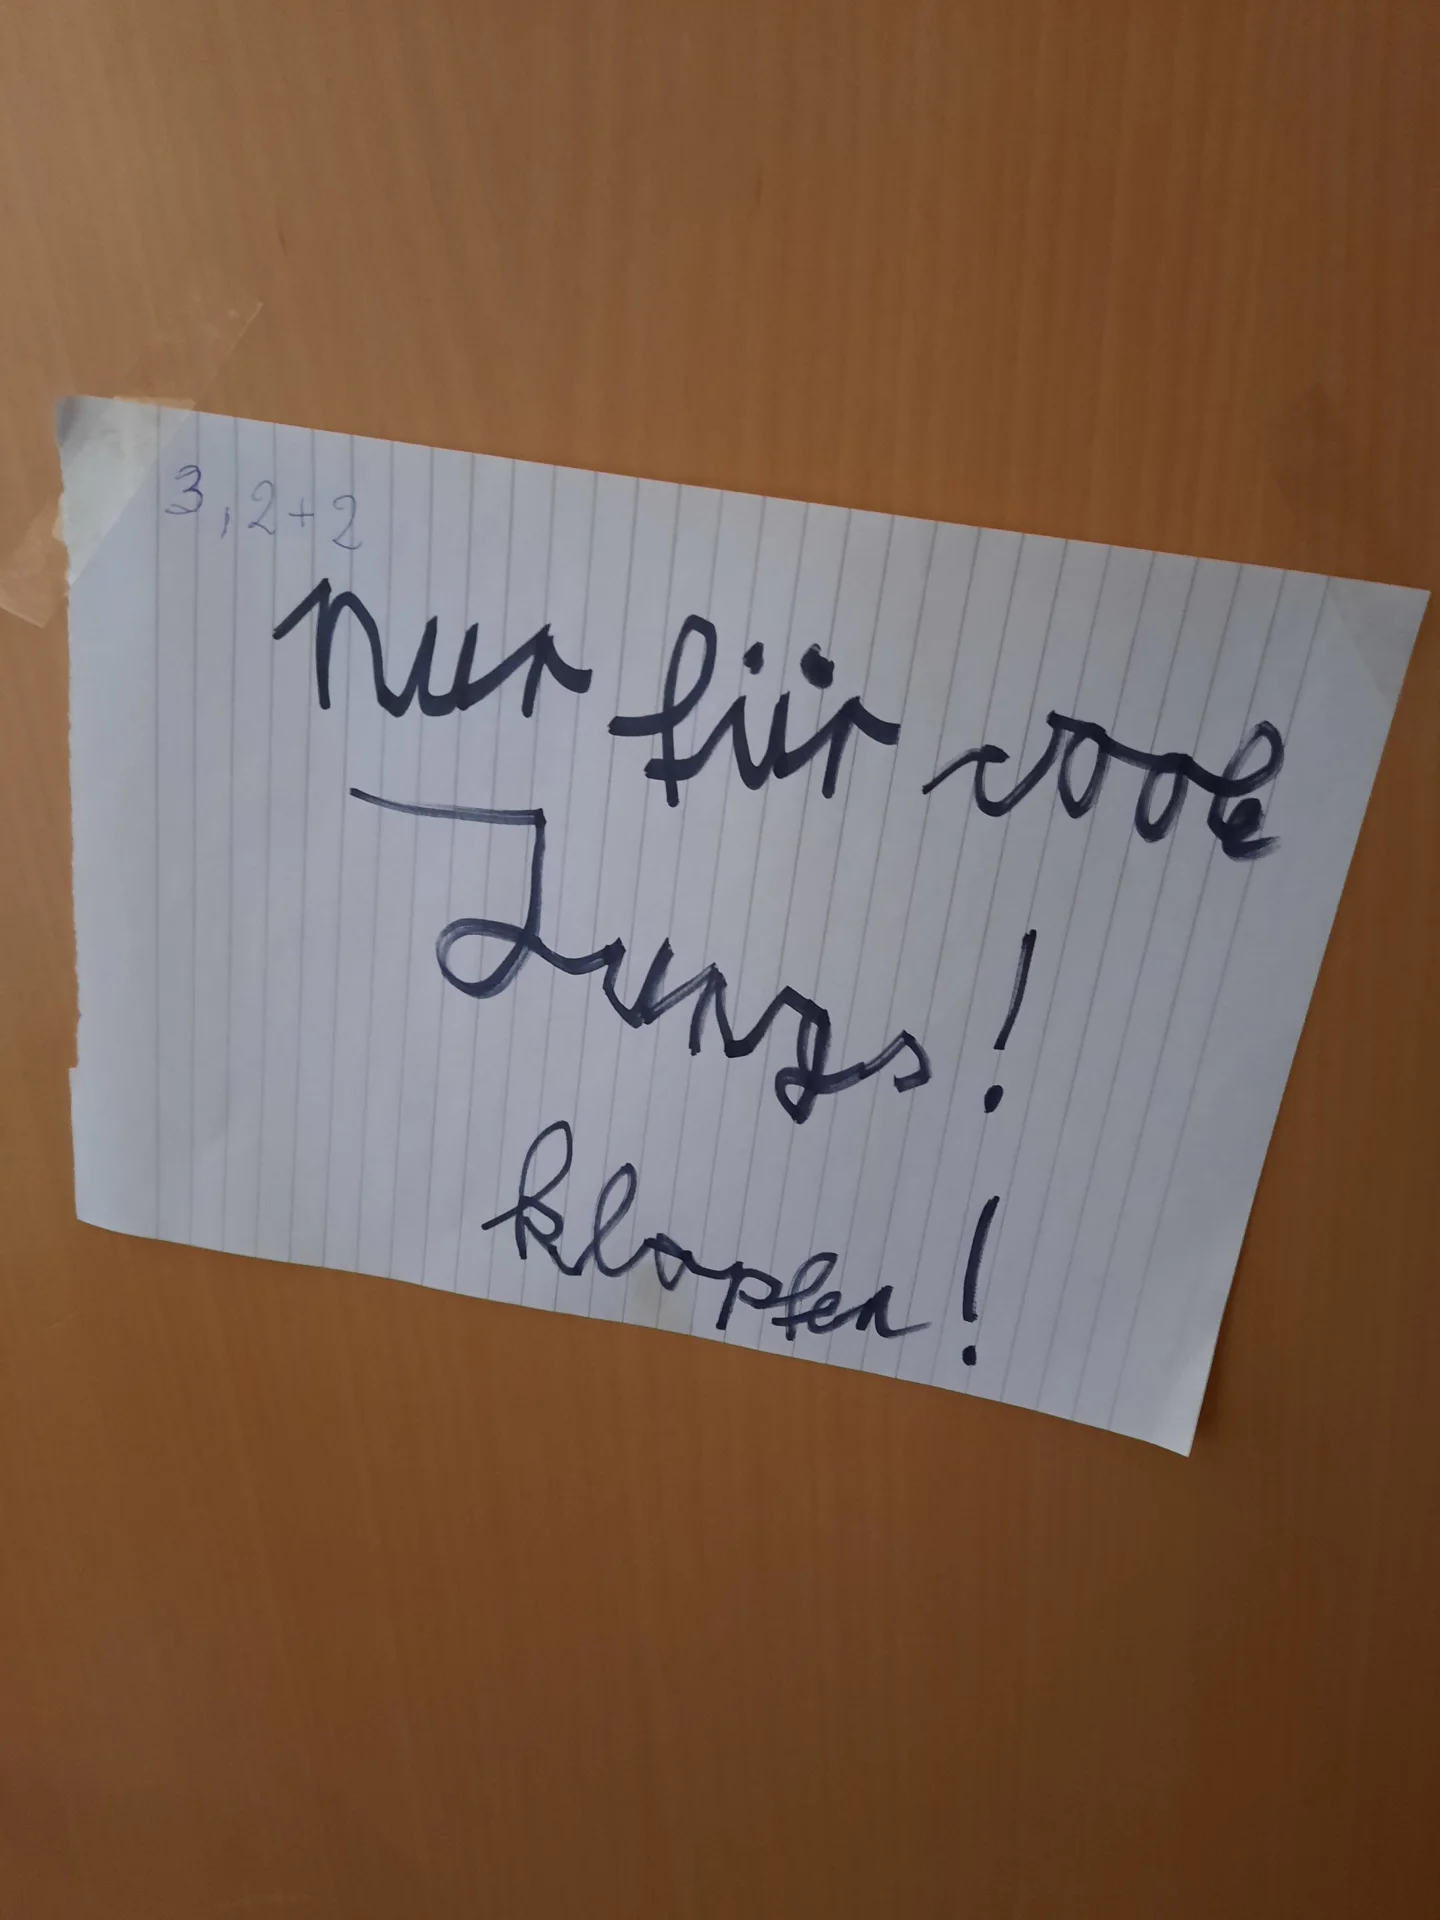 3,2+2
nur für coole
Jungs!
klopfen!